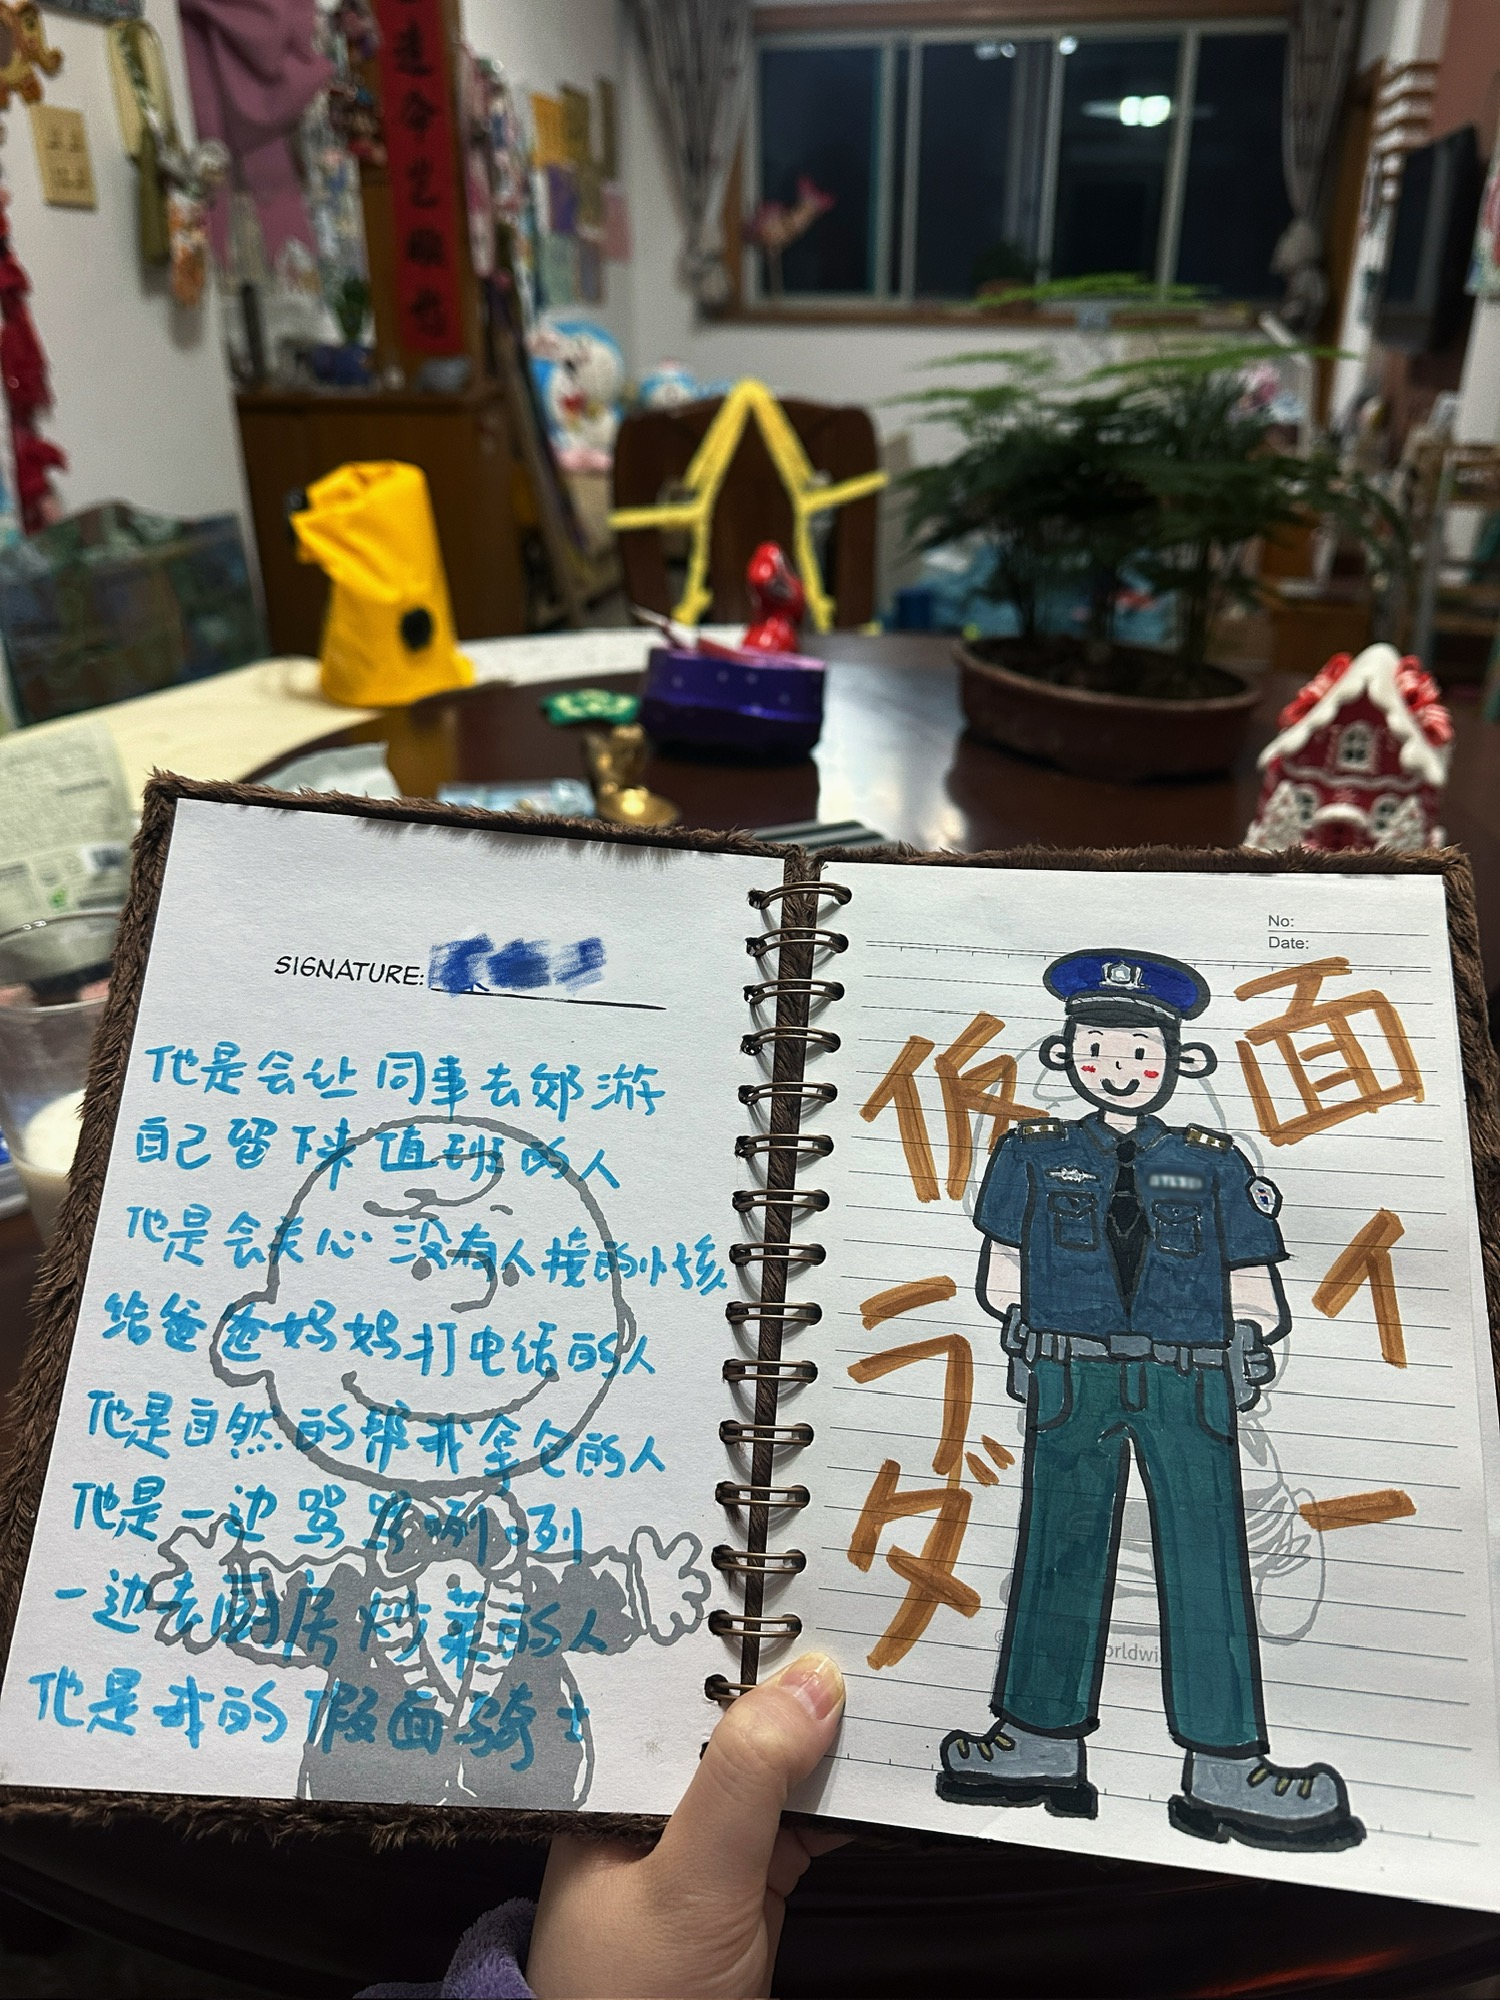 SIGNATURE:
他是会让同事去郊游
自己留下来值班的人
他是会关心没有人接的小孩
给爸爸妈妈打电话的人
他是自然的帮我拿包的人
他是一边骂骂咧咧
一边去厨房炒菜的人
他是我的假面骑士
No:
Date:
仮面
ライ
ダー
orldwi